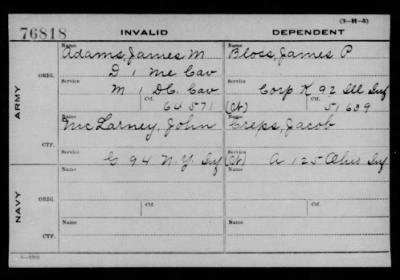 (3-H-5)
76818 INVALID DEPENDENT
ARMY
ORIG.
Name Adams, James M Name Bloss, James P
D 1 Me Cav
Service M 1 D.C. Cav Service Corp K 92 Ill Inf
Ctf. 64571 (Ct) Ctf. 51639
CTF.
Name McLarney, John Name Creps, Jacob
Service G 94 N.Y. Inf Service (Ct) A 125 Ohio Inf
NAVY
ORIG.
Name Name
Service Ctf. Service Ctf.
CTF.
Name Name
Service Service